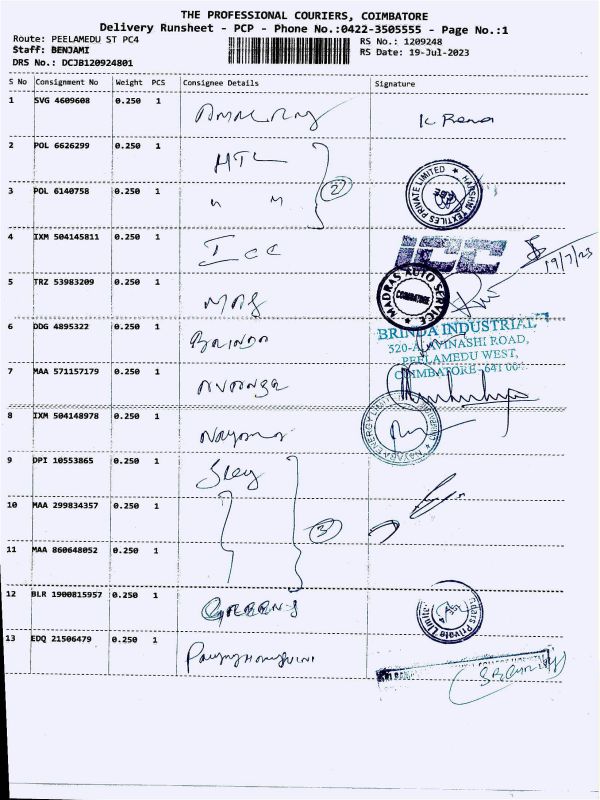 THE PROFESSIONAL COURIERS, COIMBATORE
Delivery Runsheet - PCP - Phone No.:0422-3505555 - Page No.:1
Route: PEELAMEDU ST PC4
RS No.: 1209248
Staff: BENJAMI
RS Date: 19-Jul-2023
DRS No.: DCJB120924801
S No Consignment No Weight PCS Consignee Details Signature
1 SVG 4609608 0.250 1
2 POL 6626299 0.250 1 HTL
2
3 POL 6140758 0.250 1 " "
HARSHNI TEXTILES PRIVATE LIMITED
4 IXM 504145811 0.250 1 ICC
ICC
19/7/23
5 TRZ 53983209 0.250 1 MAS
MADRAS AUTO SERVICE
COIMBATORE
6 DDG 4895322 0.250 1 BRINDA
BRINDA INDUSTRIAL
520-A, AVINASHI ROAD,
PEELAMEDU WEST,
COIMBATORE - 641 004
7 MAA 571157179 0.250 1
8 IXM 504148978 0.250 1
9 DPI 10553865 0.250 1
10 MAA 299834357 0.250 1
3
11 MAA 860648052 0.250 1
12 BLR 1900815957 0.250 1
Private Limited
13 EDQ 21506479 0.250 1